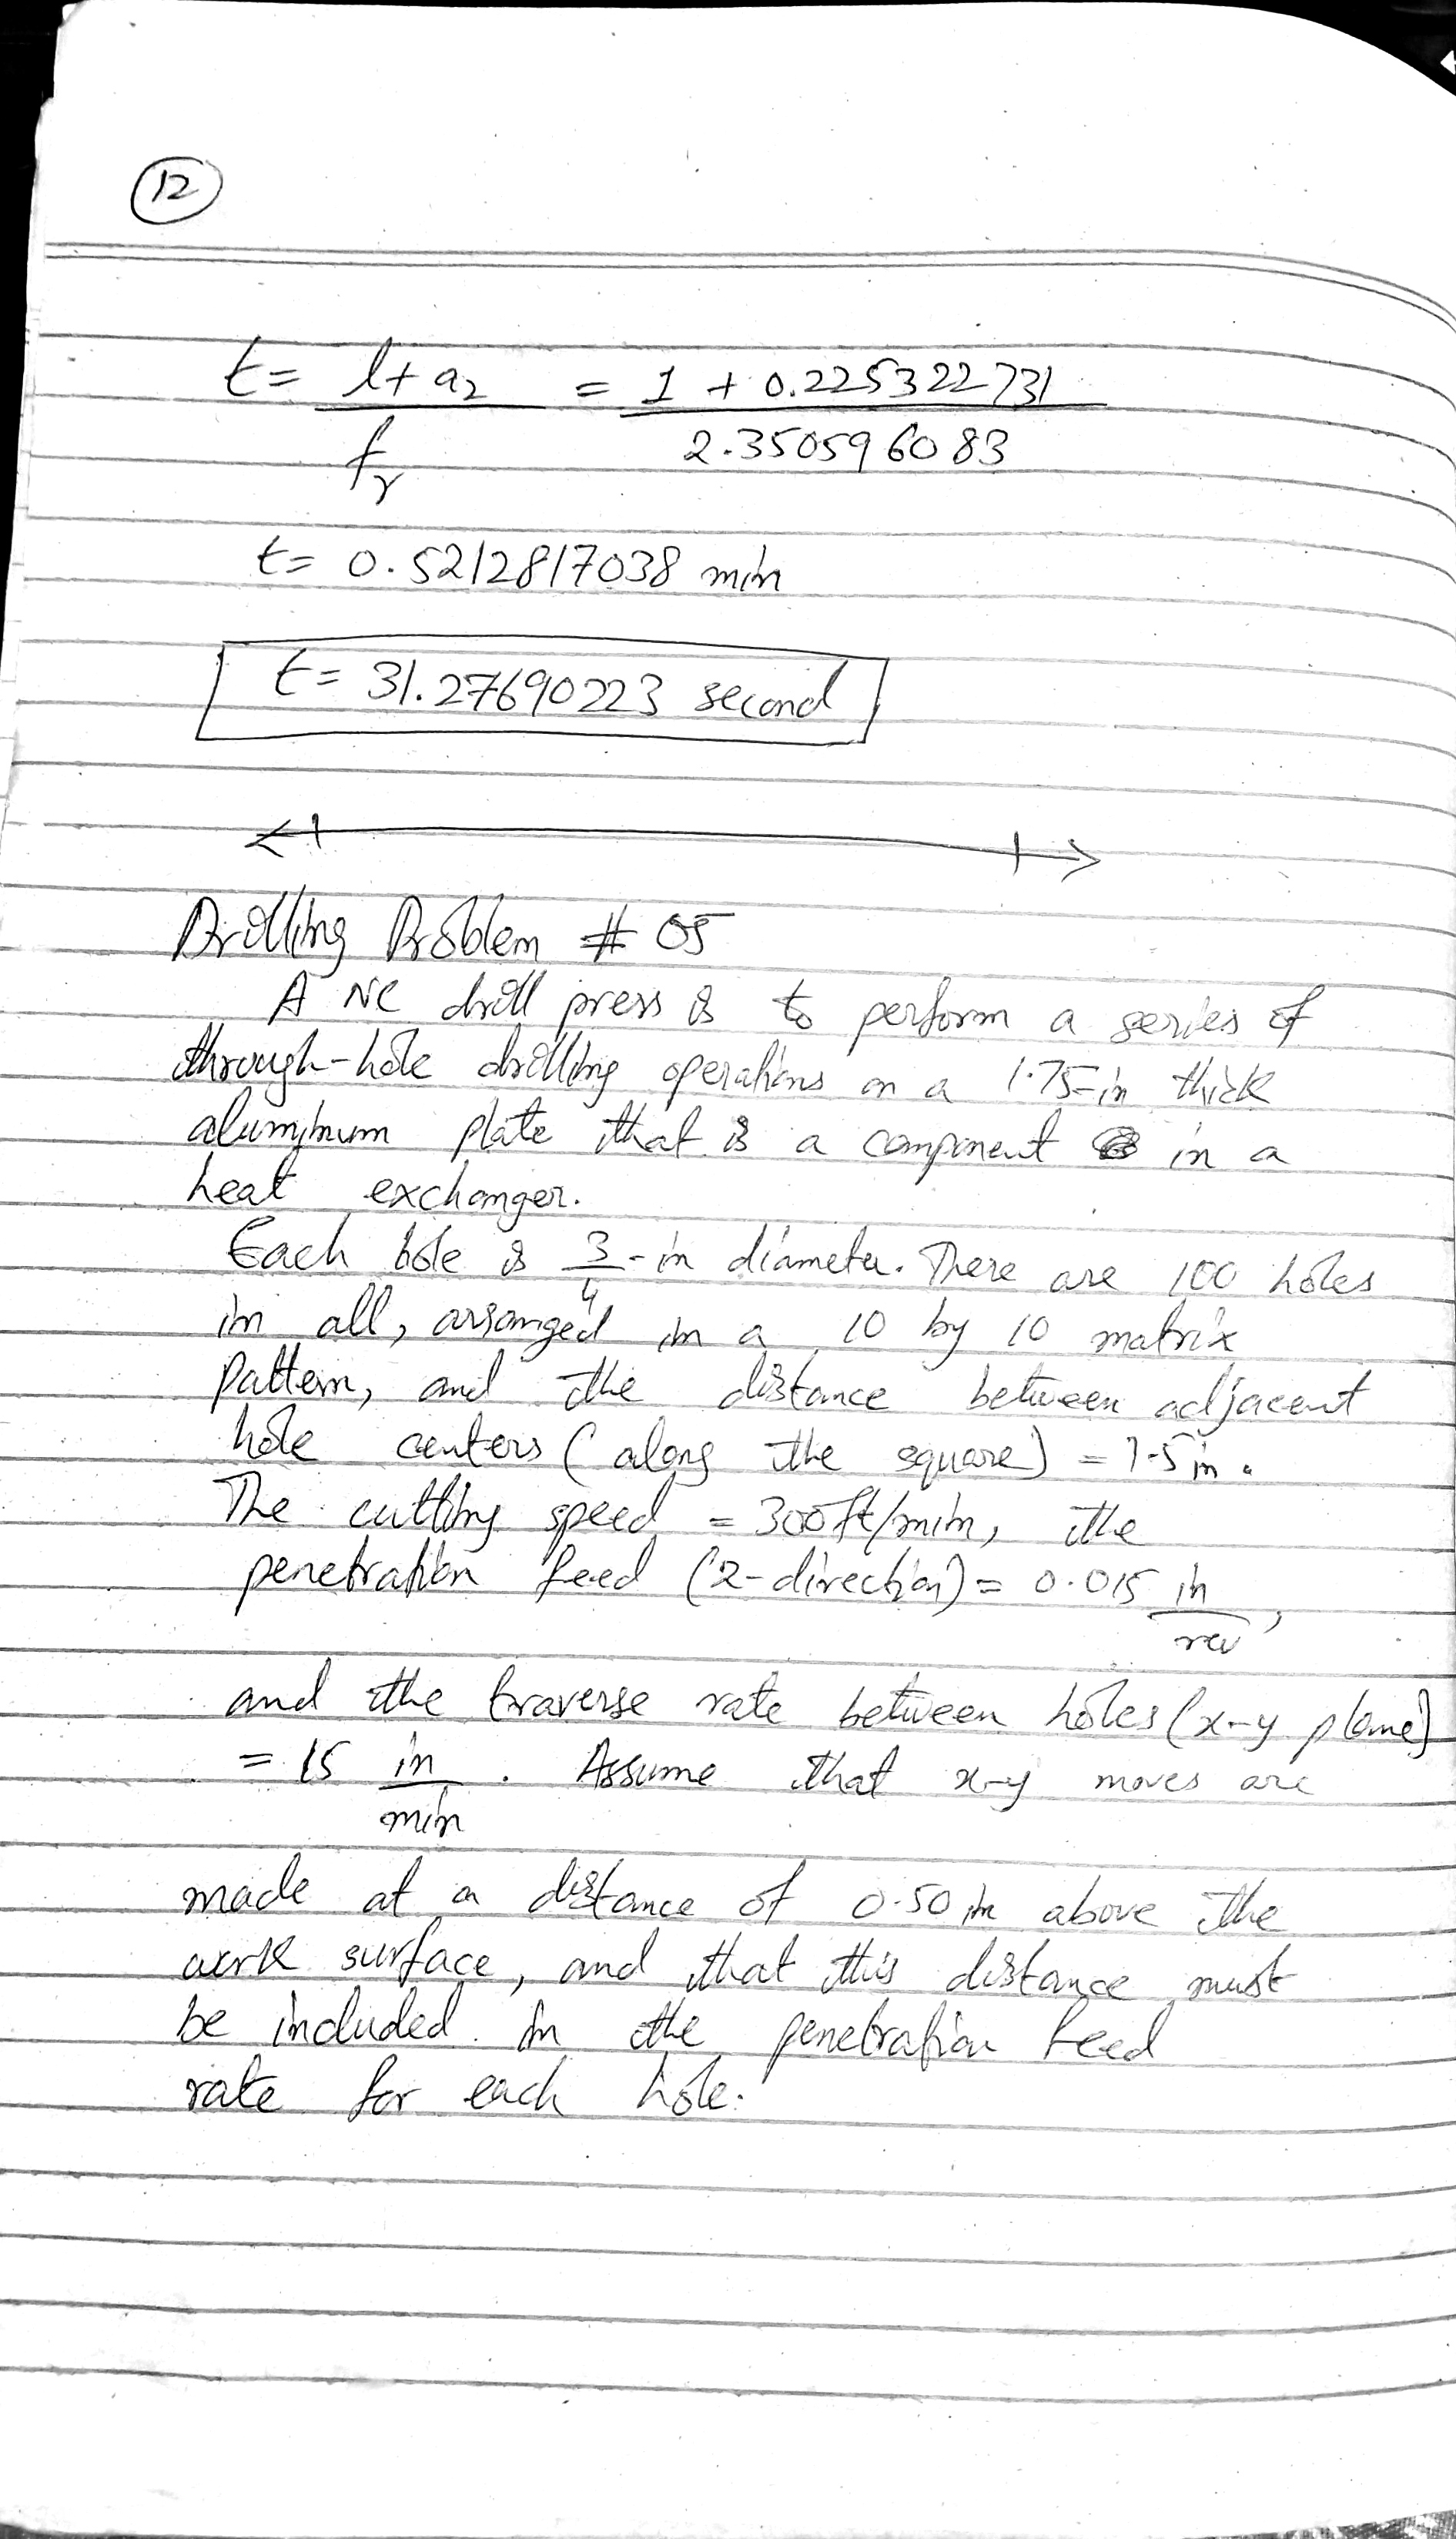 12
t = l + a₂ / f_r = 1 + 0.225322731 / 2.350596083
t = 0.5212817038 min
t = 31.27690223 second
Drilling Problem # 05
A NC drill press is to perform a series of
through-hole drilling operations on a 1.75-in thick
aluminum plate that is a component in a
heat exchanger.
Each hole is 3/4 - in diameter. There are 100 holes
in all, arranged in a 10 by 10 matrix
pattern, and the distance between adjacent
hole centers (along the square) = 1.5 in.
The cutting speed = 300 ft/min, the
penetration feed (z-direction) = 0.015 in/rev,
and the traverse rate between holes (x-y plane)
= 15 in/min. Assume that x-y moves are
made at a distance of 0.50 in above the
work surface, and that this distance must
be included in the penetration feed
rate for each hole.